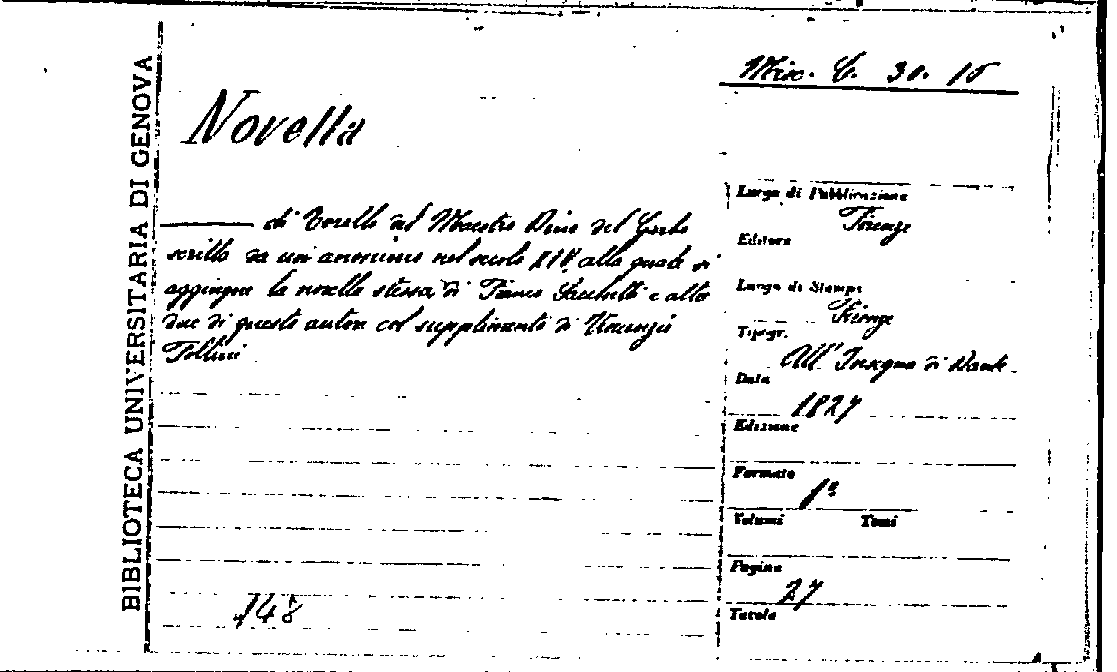 BIBLIOTECA UNIVERSITARIA DI GENOVA
Misc. C. 30. 15
Novella
di Torello del Maestro Dino del Garbo
scritta da un anonimo nel secolo XIV, alla quale si
aggiunge la novella stessa di Franco Sacchetti e altre
due di questo autore col supplimento di Vincenzio
Follini
Luogo di Pubblicazione
Firenze
Editore
Luogo di Stampa
Firenze
Tipogr.
All' Insegna di Dante
Data
1827
Edizione
Formato
Volumi Tomi
Pagine
27
Tavole
148